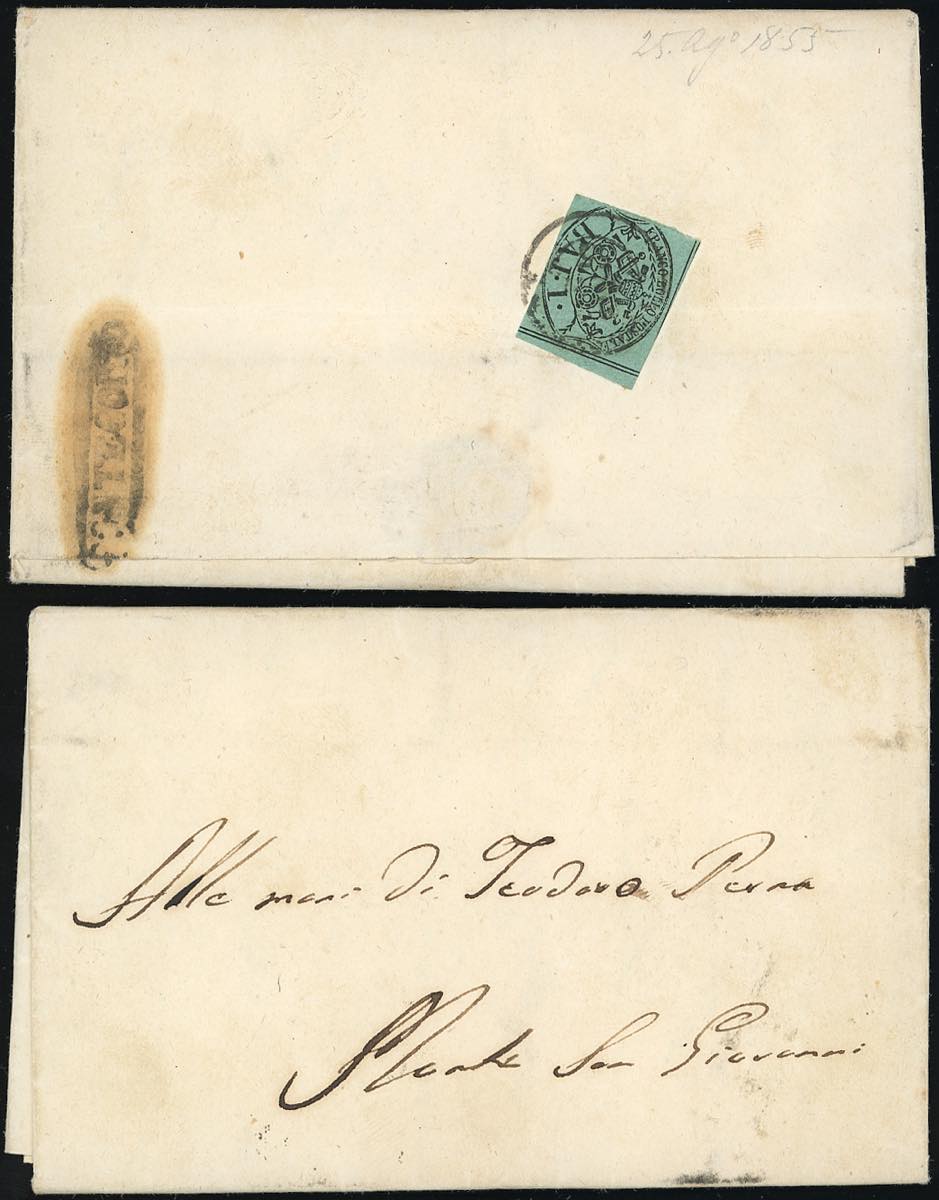 25. Ago 1855
FRANCO BOLLO POSTALE
BAJ. 1.
Alle mani di Teodoro Perna
Monte San Giovanni